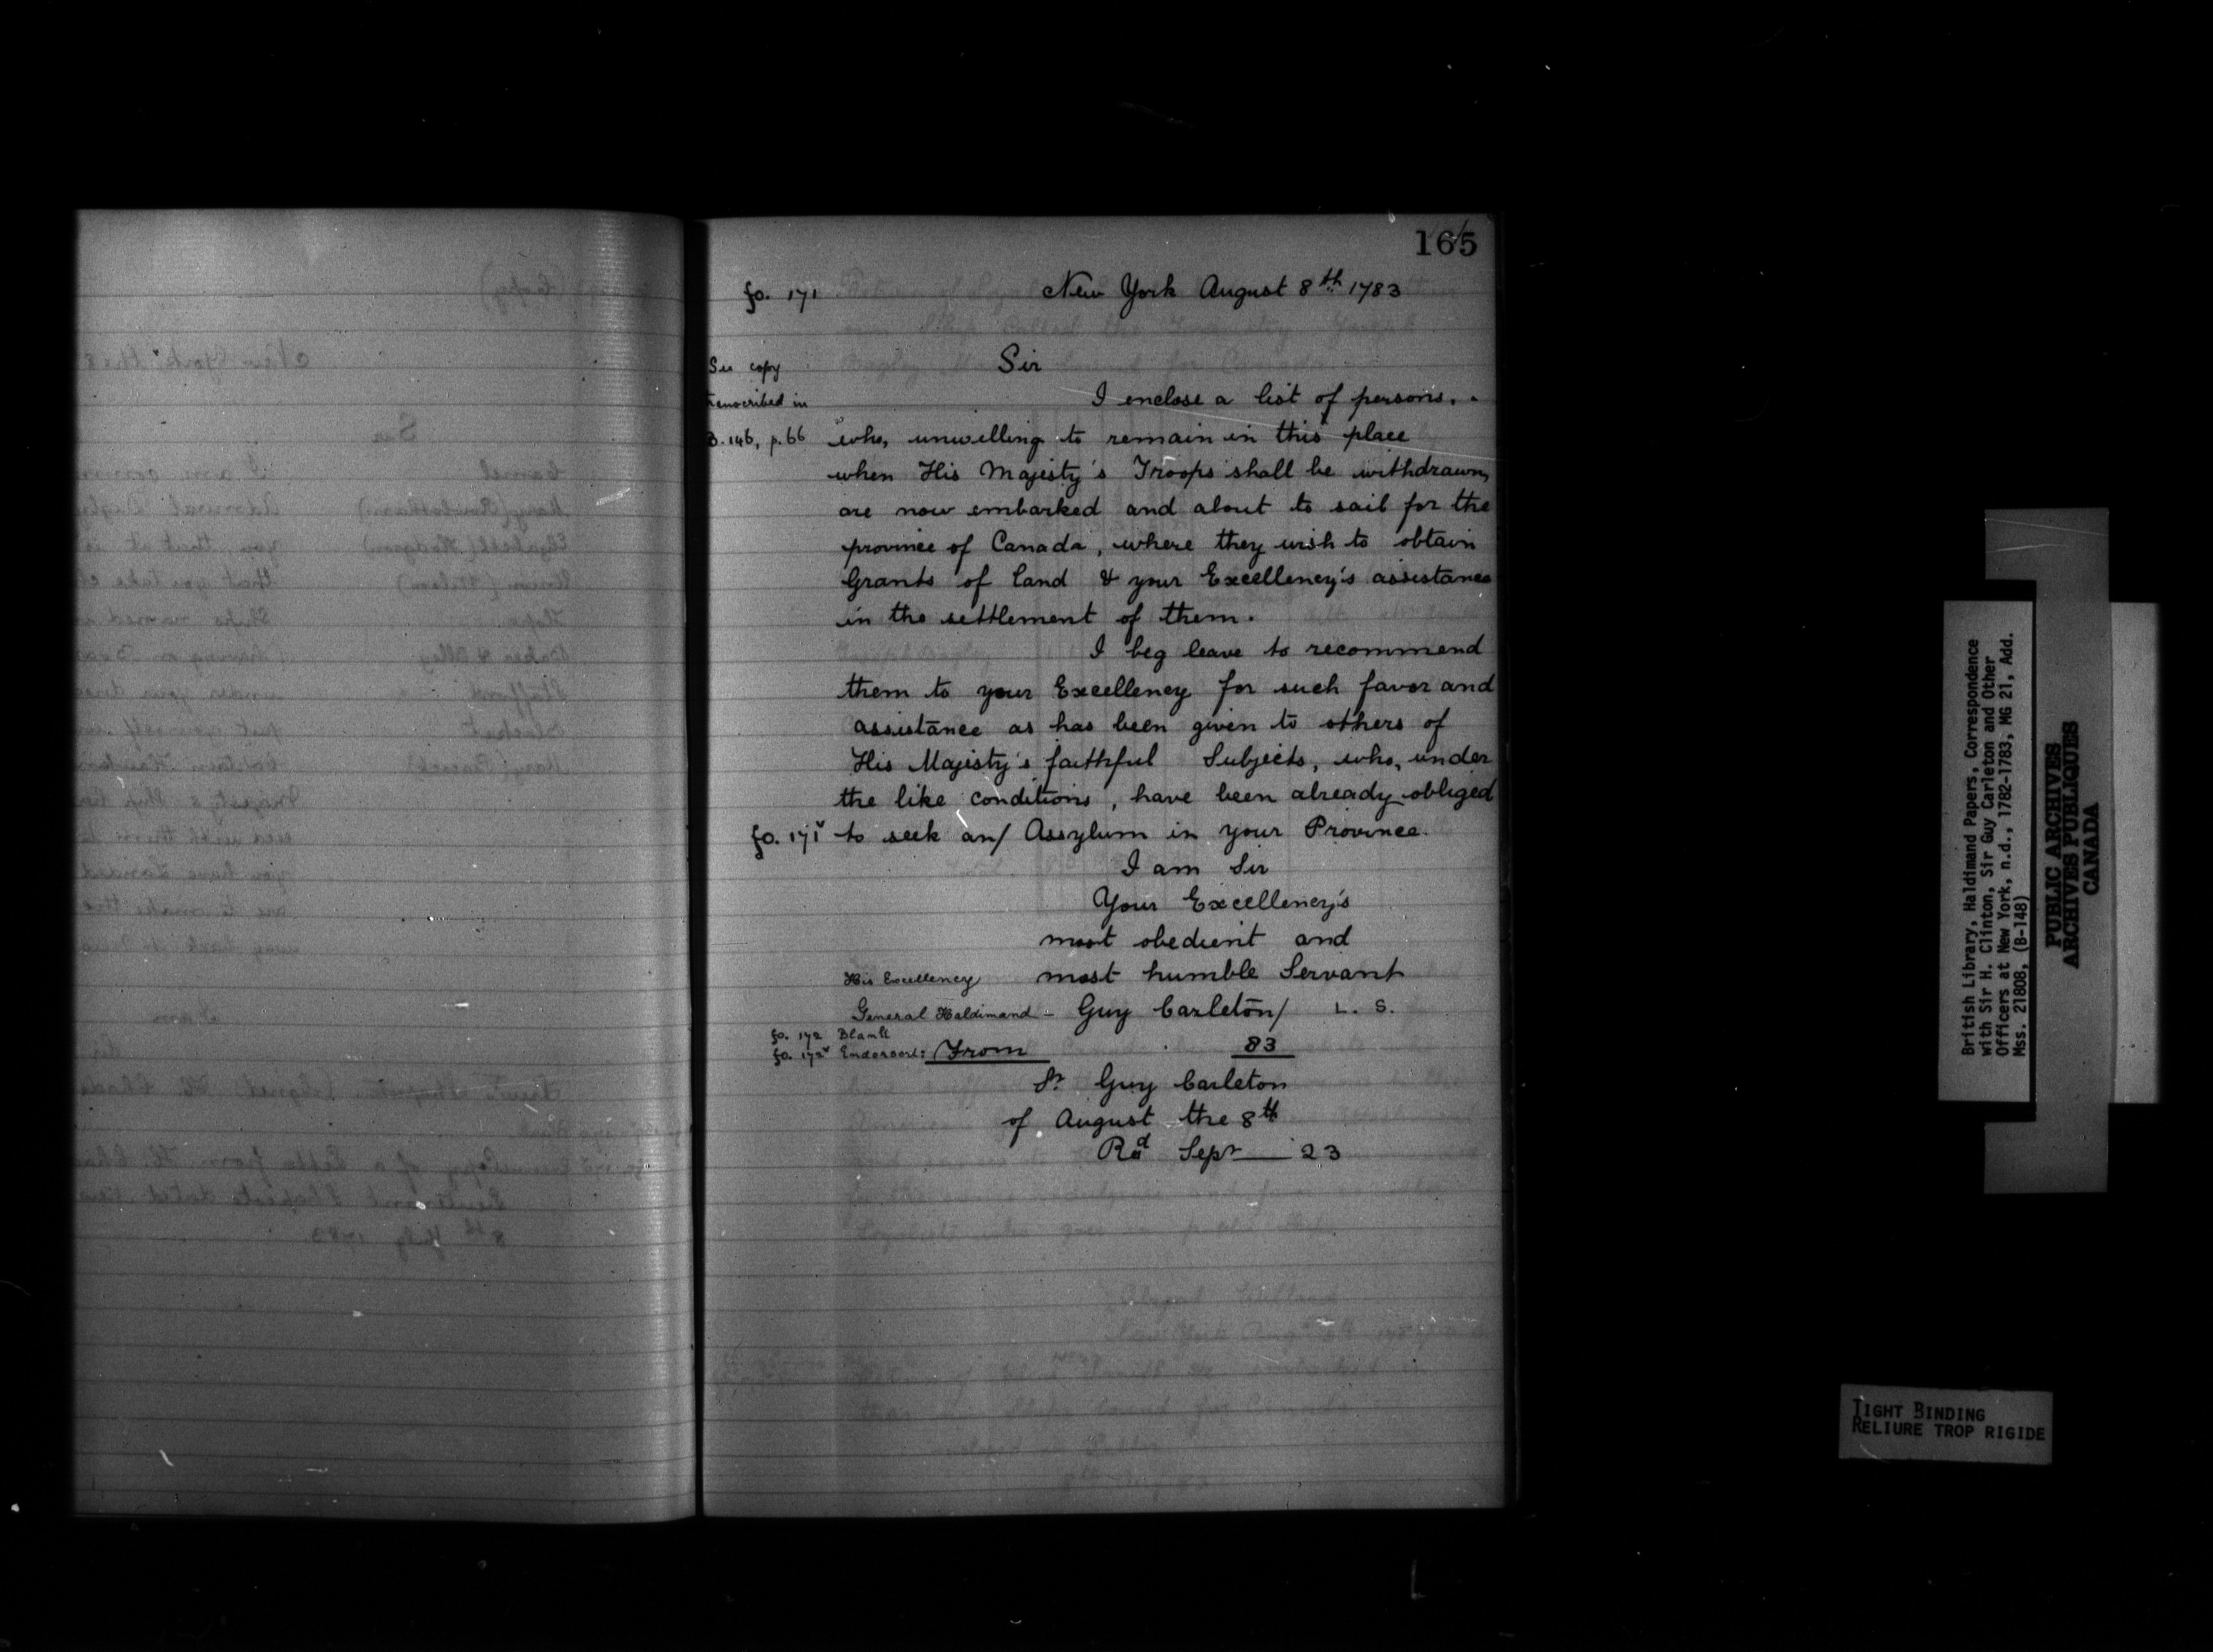 165
fo. 171 New York August 8th 1783
See copy
transcribed in
B. 146, p. 66
Sir
I enclose a list of persons,
who, unwilling to remain in this place
when His Majesty's Troops shall be withdrawn,
are now embarked and about to sail for the
province of Canada, where they wish to obtain
Grants of land & your Excellency's assistance
in the settlement of them.
I beg leave to recommend
them to your Excellency for such favor and
assistance as has been given to others of
His Majesty's faithful Subjects, who, under
the like conditions, have been already obliged
fo. 171v to seek an/ Assylum in your Province.
I am Sir
Your Excellency's
most obedient and
His Excellency most humble Servant
General Haldimand - Guy Carleton/ L. S.
fo. 172 Blank
fo. 172v Endorsed: From 83
Sr Guy Carleton
of August the 8th
Rd Sepr 23
British Library, Haldimand Papers, Correspondence
with Sir H. Clinton, Sir Guy Carleton and Other
Officers at New York, n.d., 1782-1783, MG 21, Add.
Mss. 21808, (B-148)
PUBLIC ARCHIVES
ARCHIVES PUBLIQUES
CANADA
TIGHT BINDING
RELIURE TROP RIGIDE